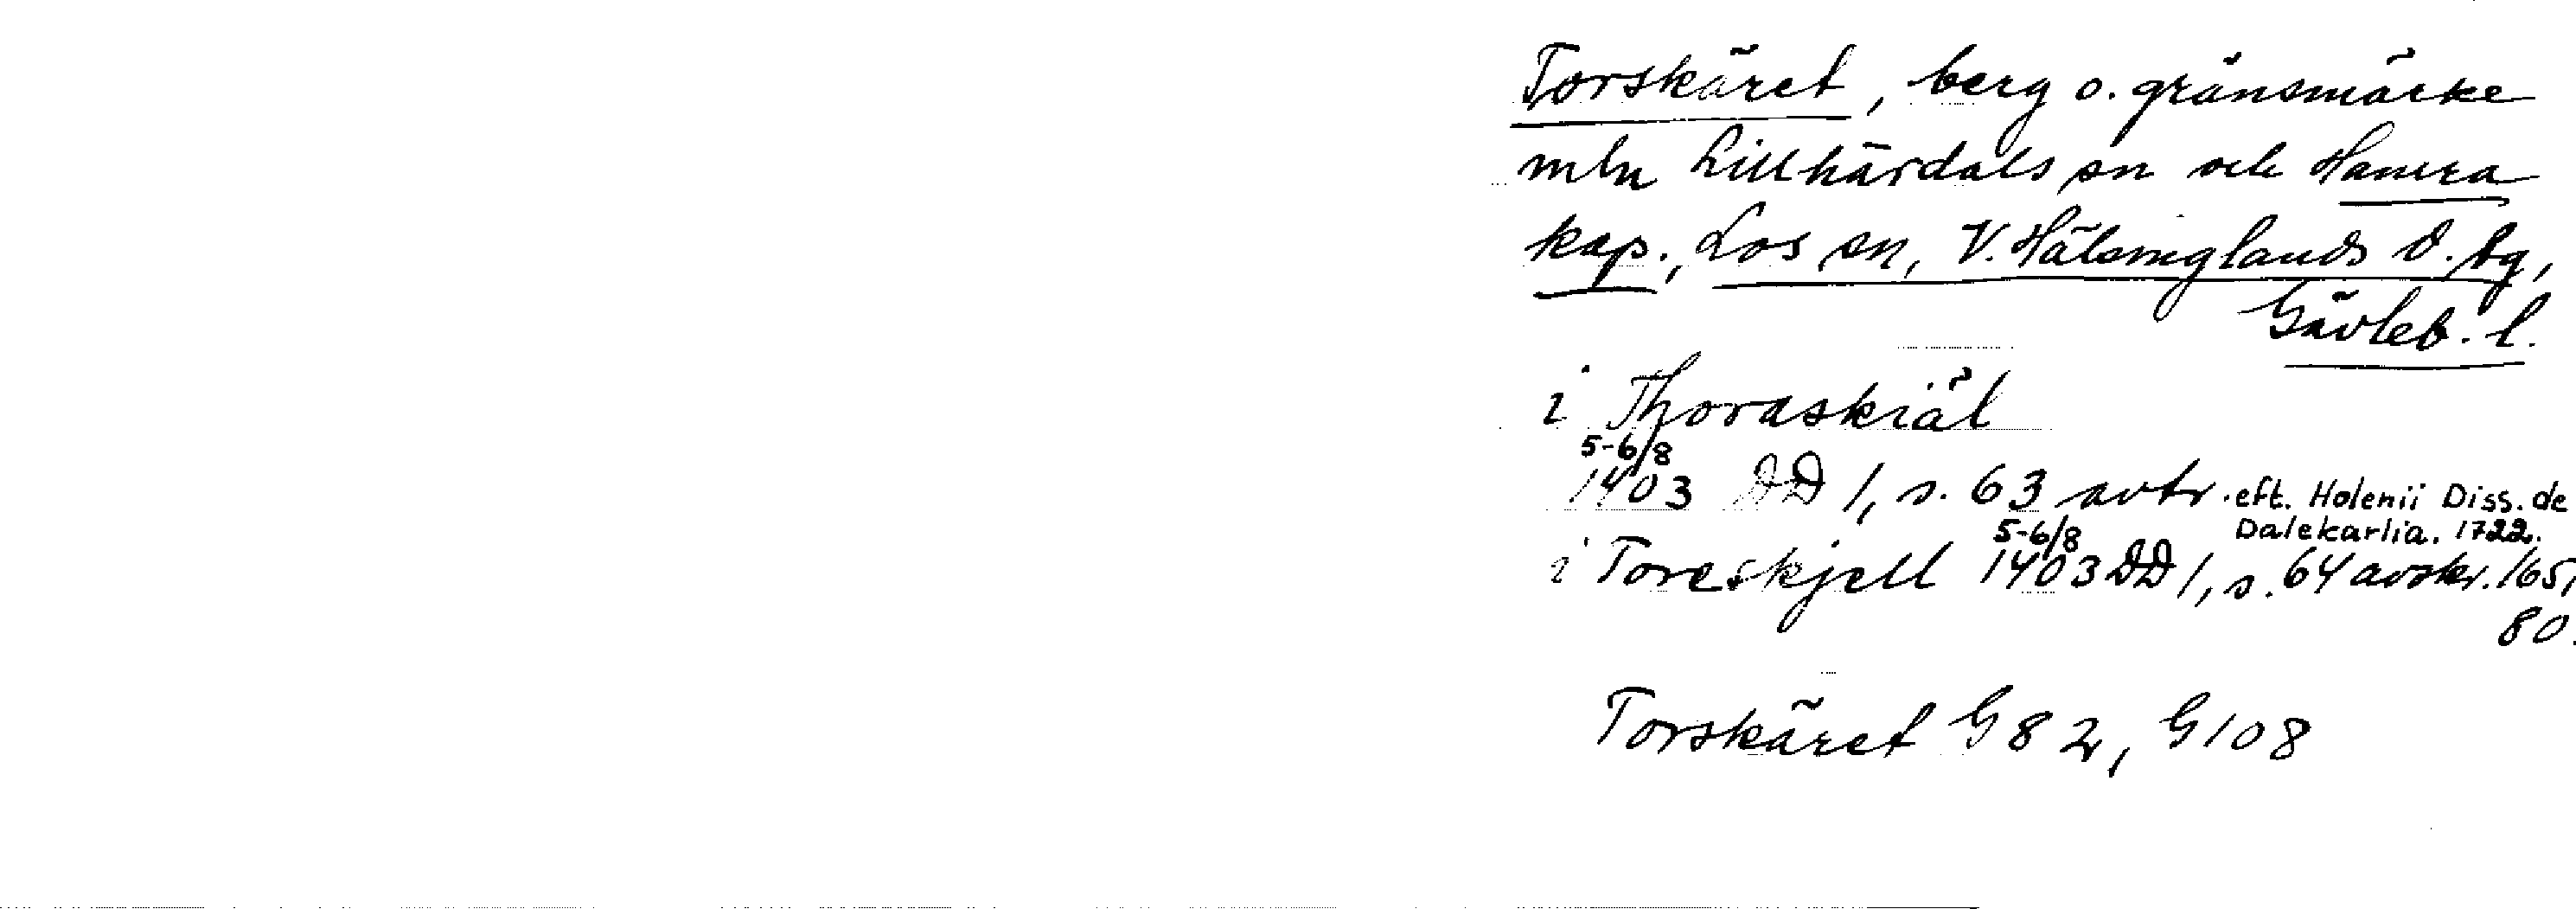 Torskäret, berg o. gränsmärke
mln Lillhärdals sn och Hamra
kap., Los sn, V. Hälsinglands d. sg,
Gävleb. l.
i Thoraskiäl
5-6/8
1403 DD 1, s. 63 avtr. eft. Holenii Diss. de
Dalekarlia. 1722.
i Toreskjell 5-6/8 1403 DD 1, s. 64 avskr. 1651
80.
Torskäret G 82, G 108